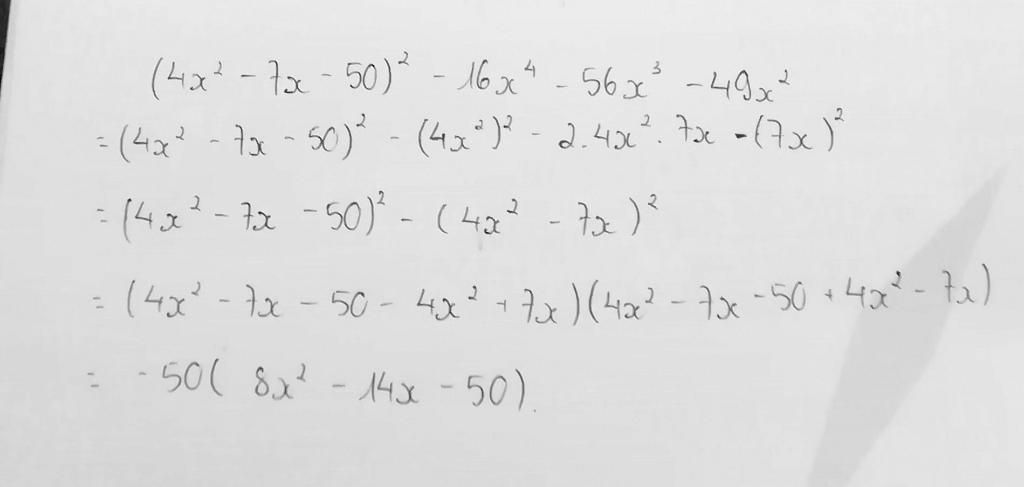 (4x² - 7x - 50)² - 16x⁴ - 56x³ - 49x²
= (4x² - 7x - 50)² - (4x²)² - 2.4x². 7x - (7x)²
= (4x² - 7x - 50)² - (4x² - 7x)²
= (4x² - 7x - 50 - 4x² + 7x)(4x² - 7x - 50 + 4x² - 7x)
= - 50( 8x² - 14x - 50).